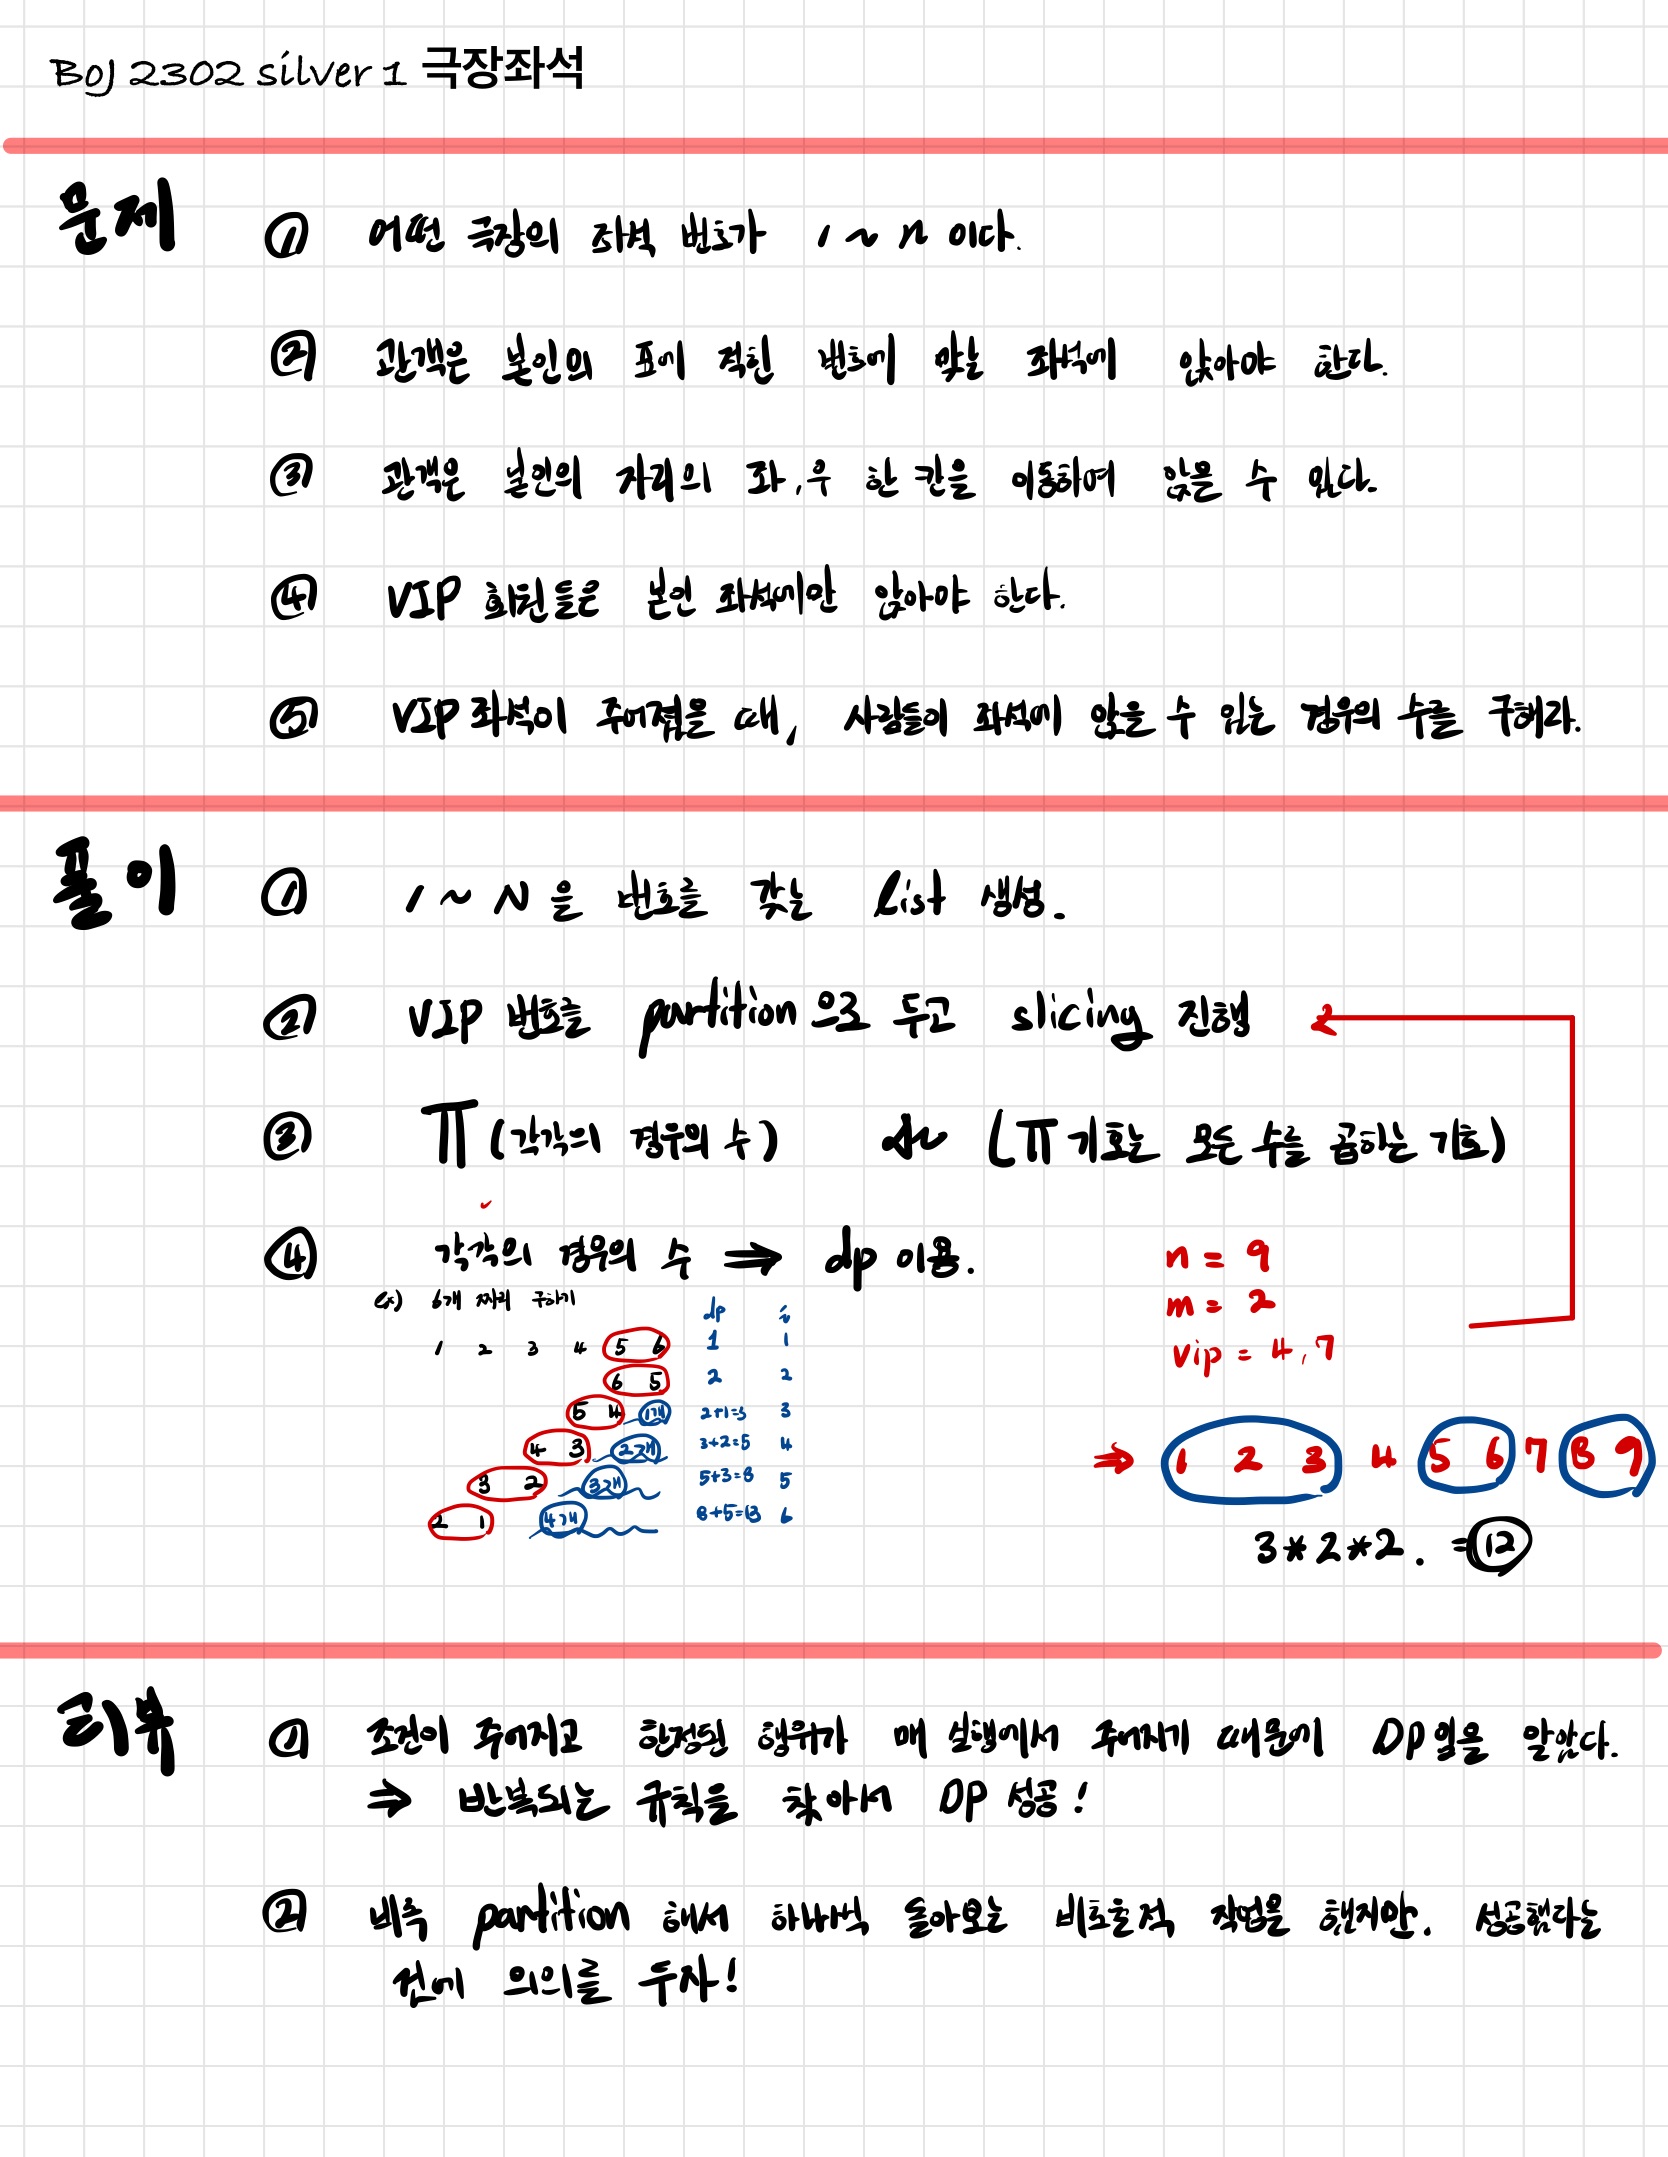 BOJ 2302 silver 1 극장좌석
문제
① 어떤 극장의 좌석 번호가 1 ~ n 이다.
② 관객은 본인의 표에 적힌 번호에 맞는 좌석에 앉아야 한다.
③ 관객은 본인의 자리의 좌,우 한 칸을 이동하여 앉을 수 있다.
④ VIP 회원들은 본인 좌석에만 앉아야 한다.
⑤ VIP 좌석이 주어졌을 때, 사람들이 좌석에 앉을 수 있는 경우의 수를 구해라.
풀이
① 1 ~ N 을 번호를 갖는 list 생성.
② VIP 번호를 partition으로 두고 slicing 진행
③ π (각각의 경우의 수) (π 기호는 모든 수를 곱하는 기호)
④ 각각의 경우의 수 ⇒ dp 이용.
ex) 6개 짜리 구하기
dp i
1 2 3 4 5 6 1 1
6 5 2 2
5 4 1개 2+1=3 3
4 3 2개 3+2=5 4
3 2 3개 5+3=8 5
2 1 4개 8+5=13 6
n = 9
m = 2
vip = 4, 7
⇒ 1 2 3 4 5 6 7 8 9
3*2*2. = 12
리뷰
① 조건이 주어지고 한정된 행위가 매 실행에서 주어지기 때문에 DP임을 알았다.
⇒ 반복되는 규칙을 찾아서 DP 성공!
② 비록 partition 해서 하나씩 돌아오는 비효율적 작업을 했지만. 성공했다는
것에 의의를 두자!